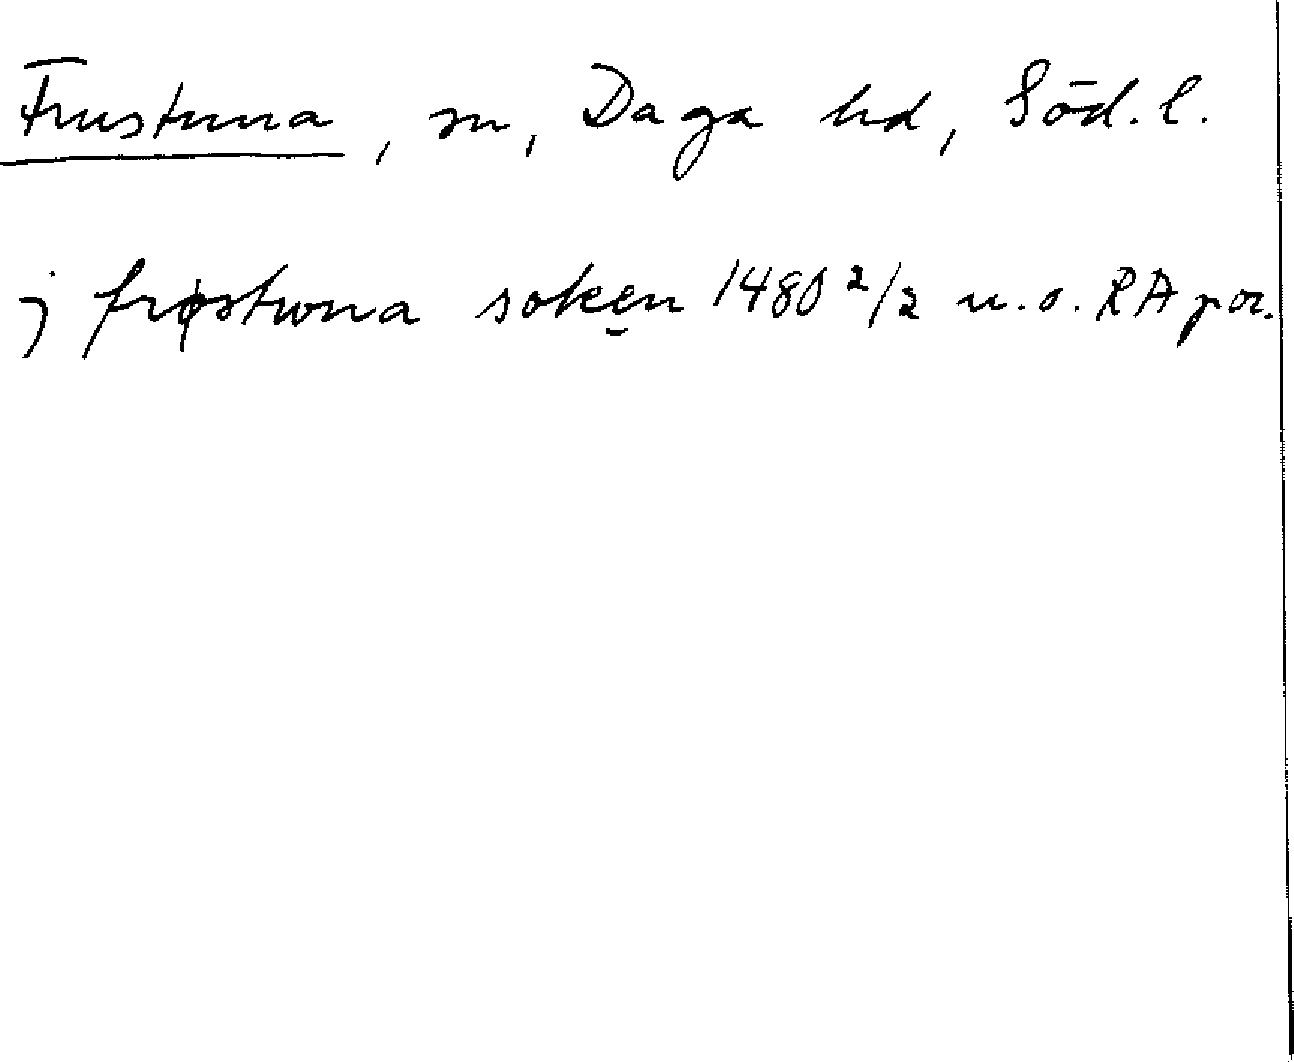 Frustuna, sn, Daga hd, Söd. l.
j frøstwna soken 1480 2/2 u.o. RA por.